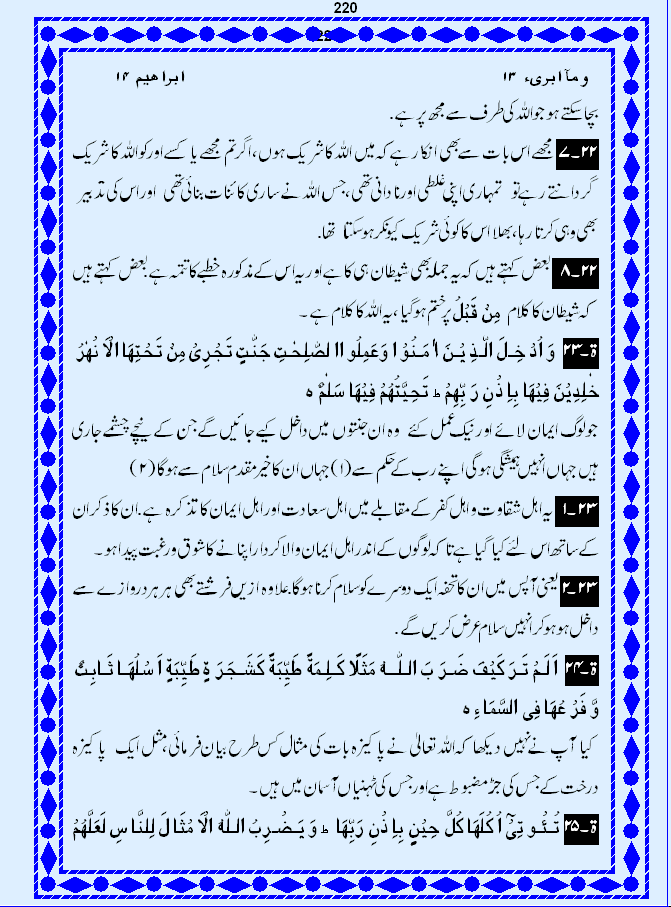 220
وماۤ ابریء ۱۳ ابراھیم ۱۴
بچا سکتے ہو جو اللہ کی طرف سے مجھ پر ہے.
۲۲۔۷ مجھے اس بات سے بھی انکار ہے کہ میں اللہ کا شریک ہوں، اگر تم مجھے یا کسے اور کو اللہ کا شریک
گردانتے رہے تو تمہاری اپنی غلطی اور نادانی تھی، جس اللہ نے ساری کائنات بنائی تھی اور اس کی تدبیر
بھی وہی کرتا رہا، بھلا اس کا کوئی شریک کیونکر ہو سکتا تھا.
۲۲۔۸ بعض کہتے ہیں کہ یہ جملہ بھی شیطان ہی کا ہے اور یہ اس کے مذکورہ خطبے کا تتمہ ہے بعض کہتے ہیں
کہ شیطان کا کلام مِنْ قَبْلُ پر ختم ہوگیا ، یہ اللہ کا کلام ہے۔
ۃ۔۲۳ وَ اُدْ خِـلَ الَّـذِ یْـنَ اٰ مَـنُوْ ا وَعَمِلُو االصّٰلِحٰتِ جَنّٰتٍ تَجْرِیْ مِنْ تَحْتِهَا الْاَ نْهٰرُ
خٰلِدِیْنَ فِیْهَا بِاِ ذْنِ رَ بِّهِمْ ط تَحِیَّتُهُمْ فِیْهَا سَلٰمٌ ہ
جو لوگ ایمان لائے اور نیک عمل کئے وہ ان جنتوں میں داخل کیے جائیں گے جن کے نیچے چشمے جاری
ہیں جہاں انہیں ہمیشگی ہوگی اپنے رب کے حکم سے (۱) جہاں ان کا خیر مقدم سلام سے ہوگا (۲)
۲۳۔۱ یہ اہل شقاوت و اہل کفر کے مقابلے میں اہل سعادت اور اہل ایمان کا تذکرہ ہے. ان کا ذکر ان
کے ساتھ اس لئے کیا گیا ہے تاکہ لوگوں کے اندر اہل ایمان والا کردار اپنانے کا شوق و رغبت پیدا ہو۔
۲۳۔۲ یعنی آپس میں ان کا تحفہ ایک دوسرے کو سلام کرنا ہوگا. علاوہ ازیں فرشتے بھی ہر ہر دروازے سے
داخل ہو ہو کر انہیں سلام عرض کریں گے.
ۃ۔۲۴ اَ لَـمْ تَـرَ کَیْفَ ضَـرَ بَ الـلّٰـهُ مَثَلًا کَـلِمَةً طَیِّبَةً کَشَـجَـرَ ةٍ طَیِّبَةٍ اَ سْلُهَـا ثَـا بِتٌ
وَّ فَرْ عُهَا فِی السَّمَاءِ ہ
کیا آپ نے نہیں دیکھا کہ اللہ تعالیٰ نے پاکیزہ بات کی مثال کس طرح بیان فرمائی، مثل ایک پاکیزہ
درخت کے جس کی جڑ مضبوط ہے اور جس کی ٹہنیاں آسمان میں ہیں۔
ۃ۔۲۵ تُـئْـوتِیْۤ اُ کُلَهَا کُلَّ حِیْنٍ بِاِ ذْنِ رَبِّهَا ط وَ یَـضْـرِبُ الـلّٰهُ الْاَ مْثَا لَ لِلنَّا سِ لَعَلَّهُمْ